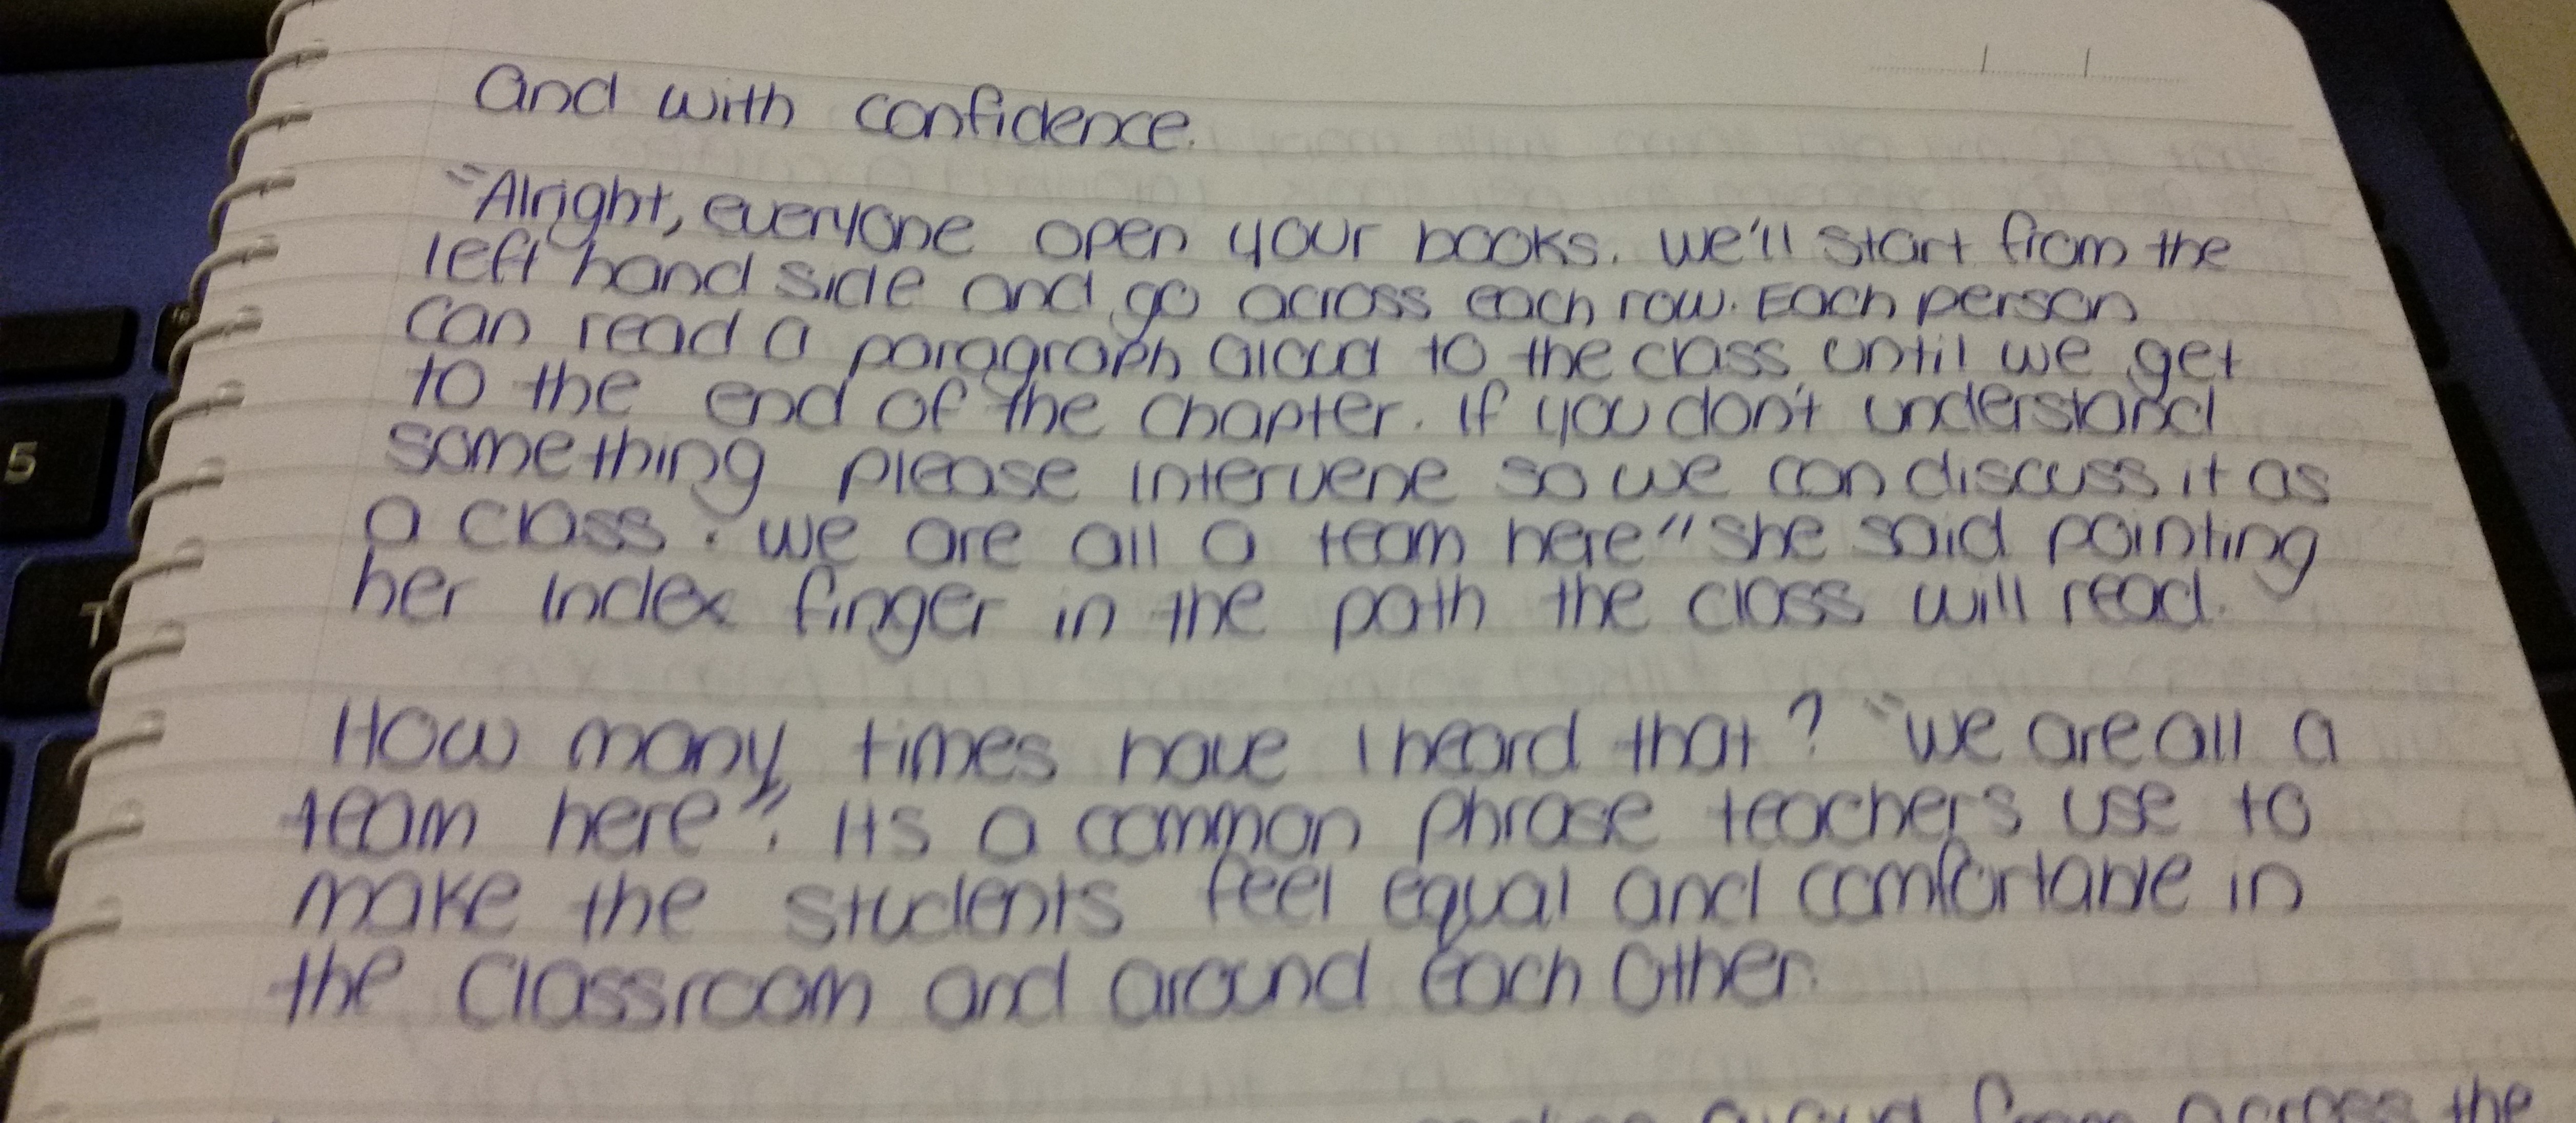 and with confidence.
"Alright, everyone open your books. we'll start from the
left hand side and go across each row. Each person
can read a paragraph aloud to the class until we get
to the end of the chapter. If you don't understand
something please intervene so we can discuss it as
a class. we are all a team here" she said pointing
her index finger in the path the class will read.
How many times have I heard that? "we are all a
team here". Its a common phrase teachers use to
make the students feel equal and comfortable in
the classroom and around each other.
from across the
5
T